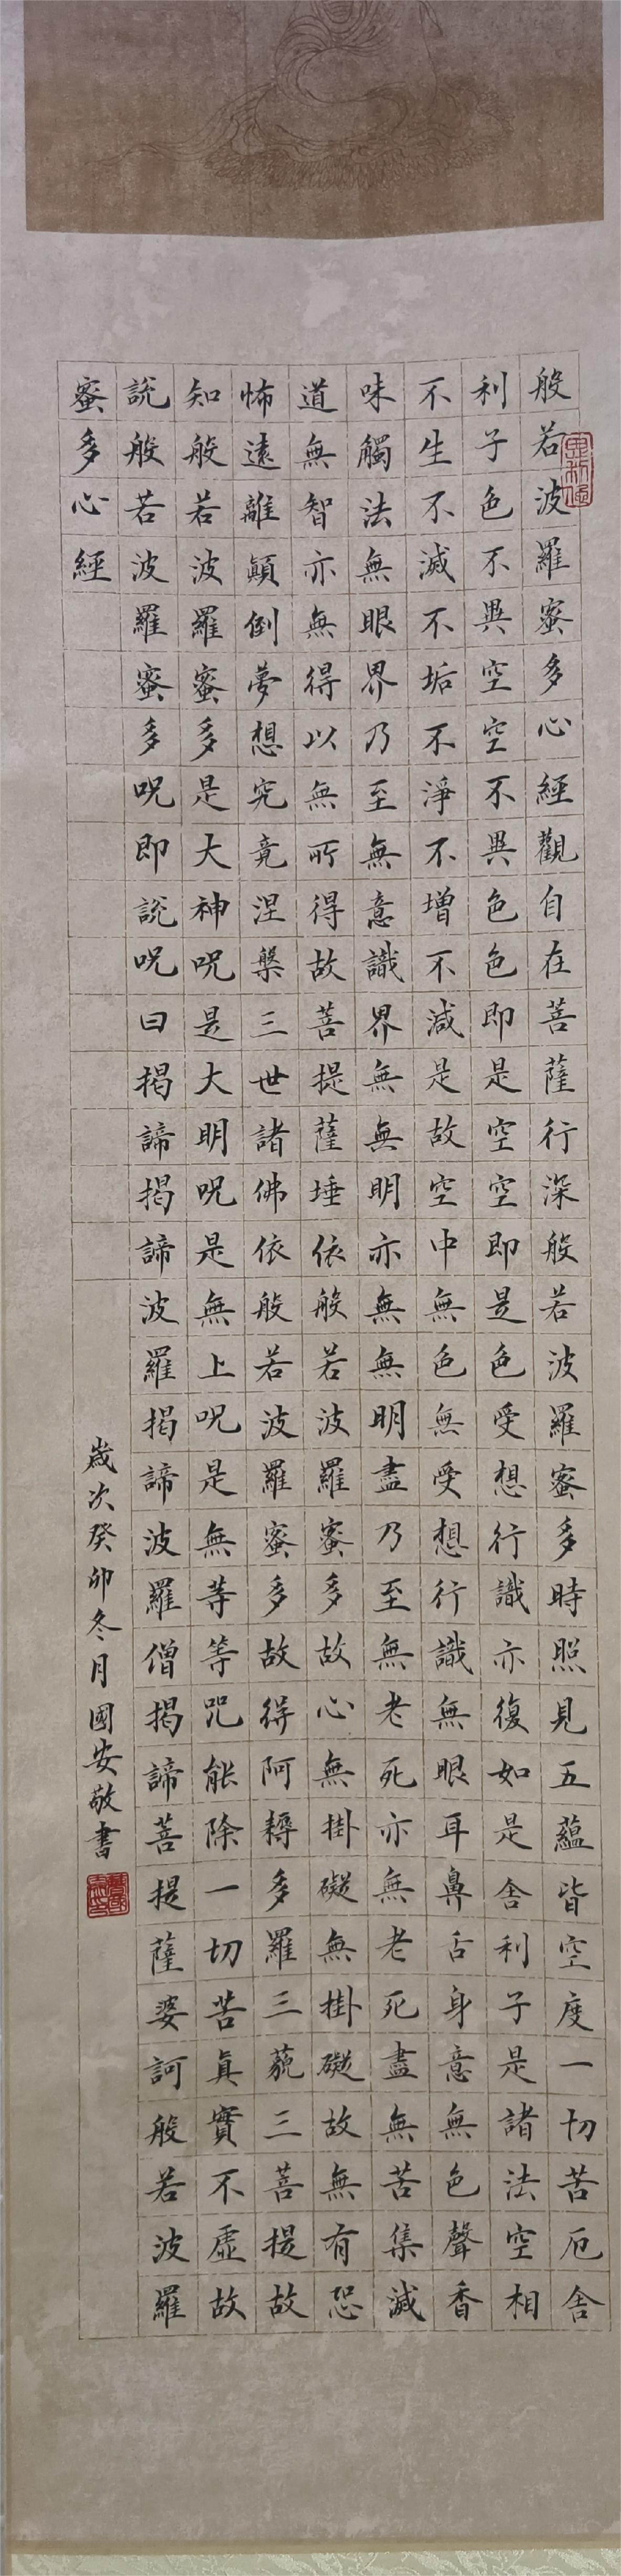 般若波羅蜜多心經觀自在菩薩行深般若波羅蜜多時照見五蘊皆空度一切苦厄舍
利子色不異空空不異色色即是空空即是色受想行識亦復如是舍利子是諸法空相
不生不滅不垢不淨不增不減是故空中無色無受想行識無眼耳鼻舌身意無色聲香
味觸法無眼界乃至無意識界無無明亦無無明盡乃至無老死亦無老死盡無苦集滅
道無智亦無得以無所得故菩提薩埵依般若波羅蜜多故心無掛礙無掛礙故無有恐
怖遠離顛倒夢想究竟涅槃三世諸佛依般若波羅蜜多故得阿耨多羅三藐三菩提故
知般若波羅蜜多是大神呪是大明呪是無上呪是無等等咒能除一切苦真實不虛故
說般若波羅蜜多呪即說呪曰揭諦揭諦波羅揭諦波羅僧揭諦菩提薩婆訶般若波羅
蜜多心經
歲次癸卯冬月國安敬書